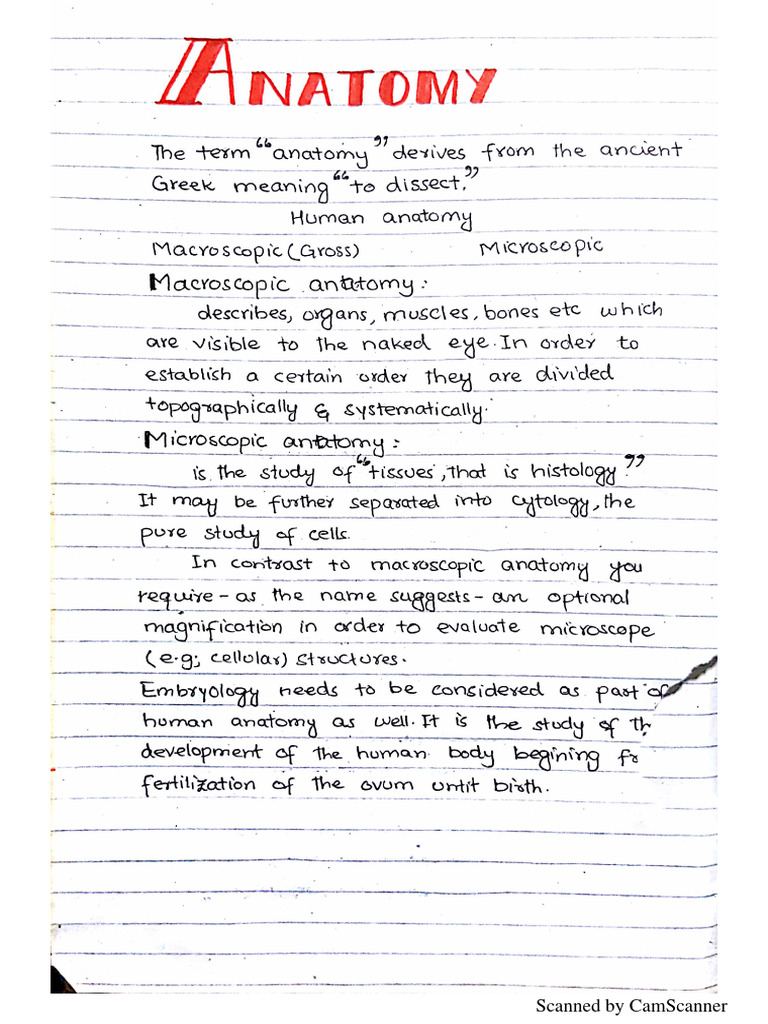 ANATOMY
The term "anatomy" derives from the ancient
Greek meaning "to dissect."
Human anatomy
Macroscopic (Gross) Microscopic
Macroscopic anatomy:
describes, organs, muscles, bones etc which
are visible to the naked eye. In order to
establish a certain order they are divided
topographically & systematically.
Microscopic anatomy:
is the study of "tissues, that is histology"
It may be further separated into cytology, the
pure study of cells.
In contrast to macroscopic anatomy you
require - as the name suggests - an optional
magnification in order to evaluate microscope
(e.g; cellular) structures.
Embryology needs to be considered as part of
human anatomy as well. It is the study of th
development of the human body begining fr
fertilization of the ovum untit birth.
Scanned by CamScanner